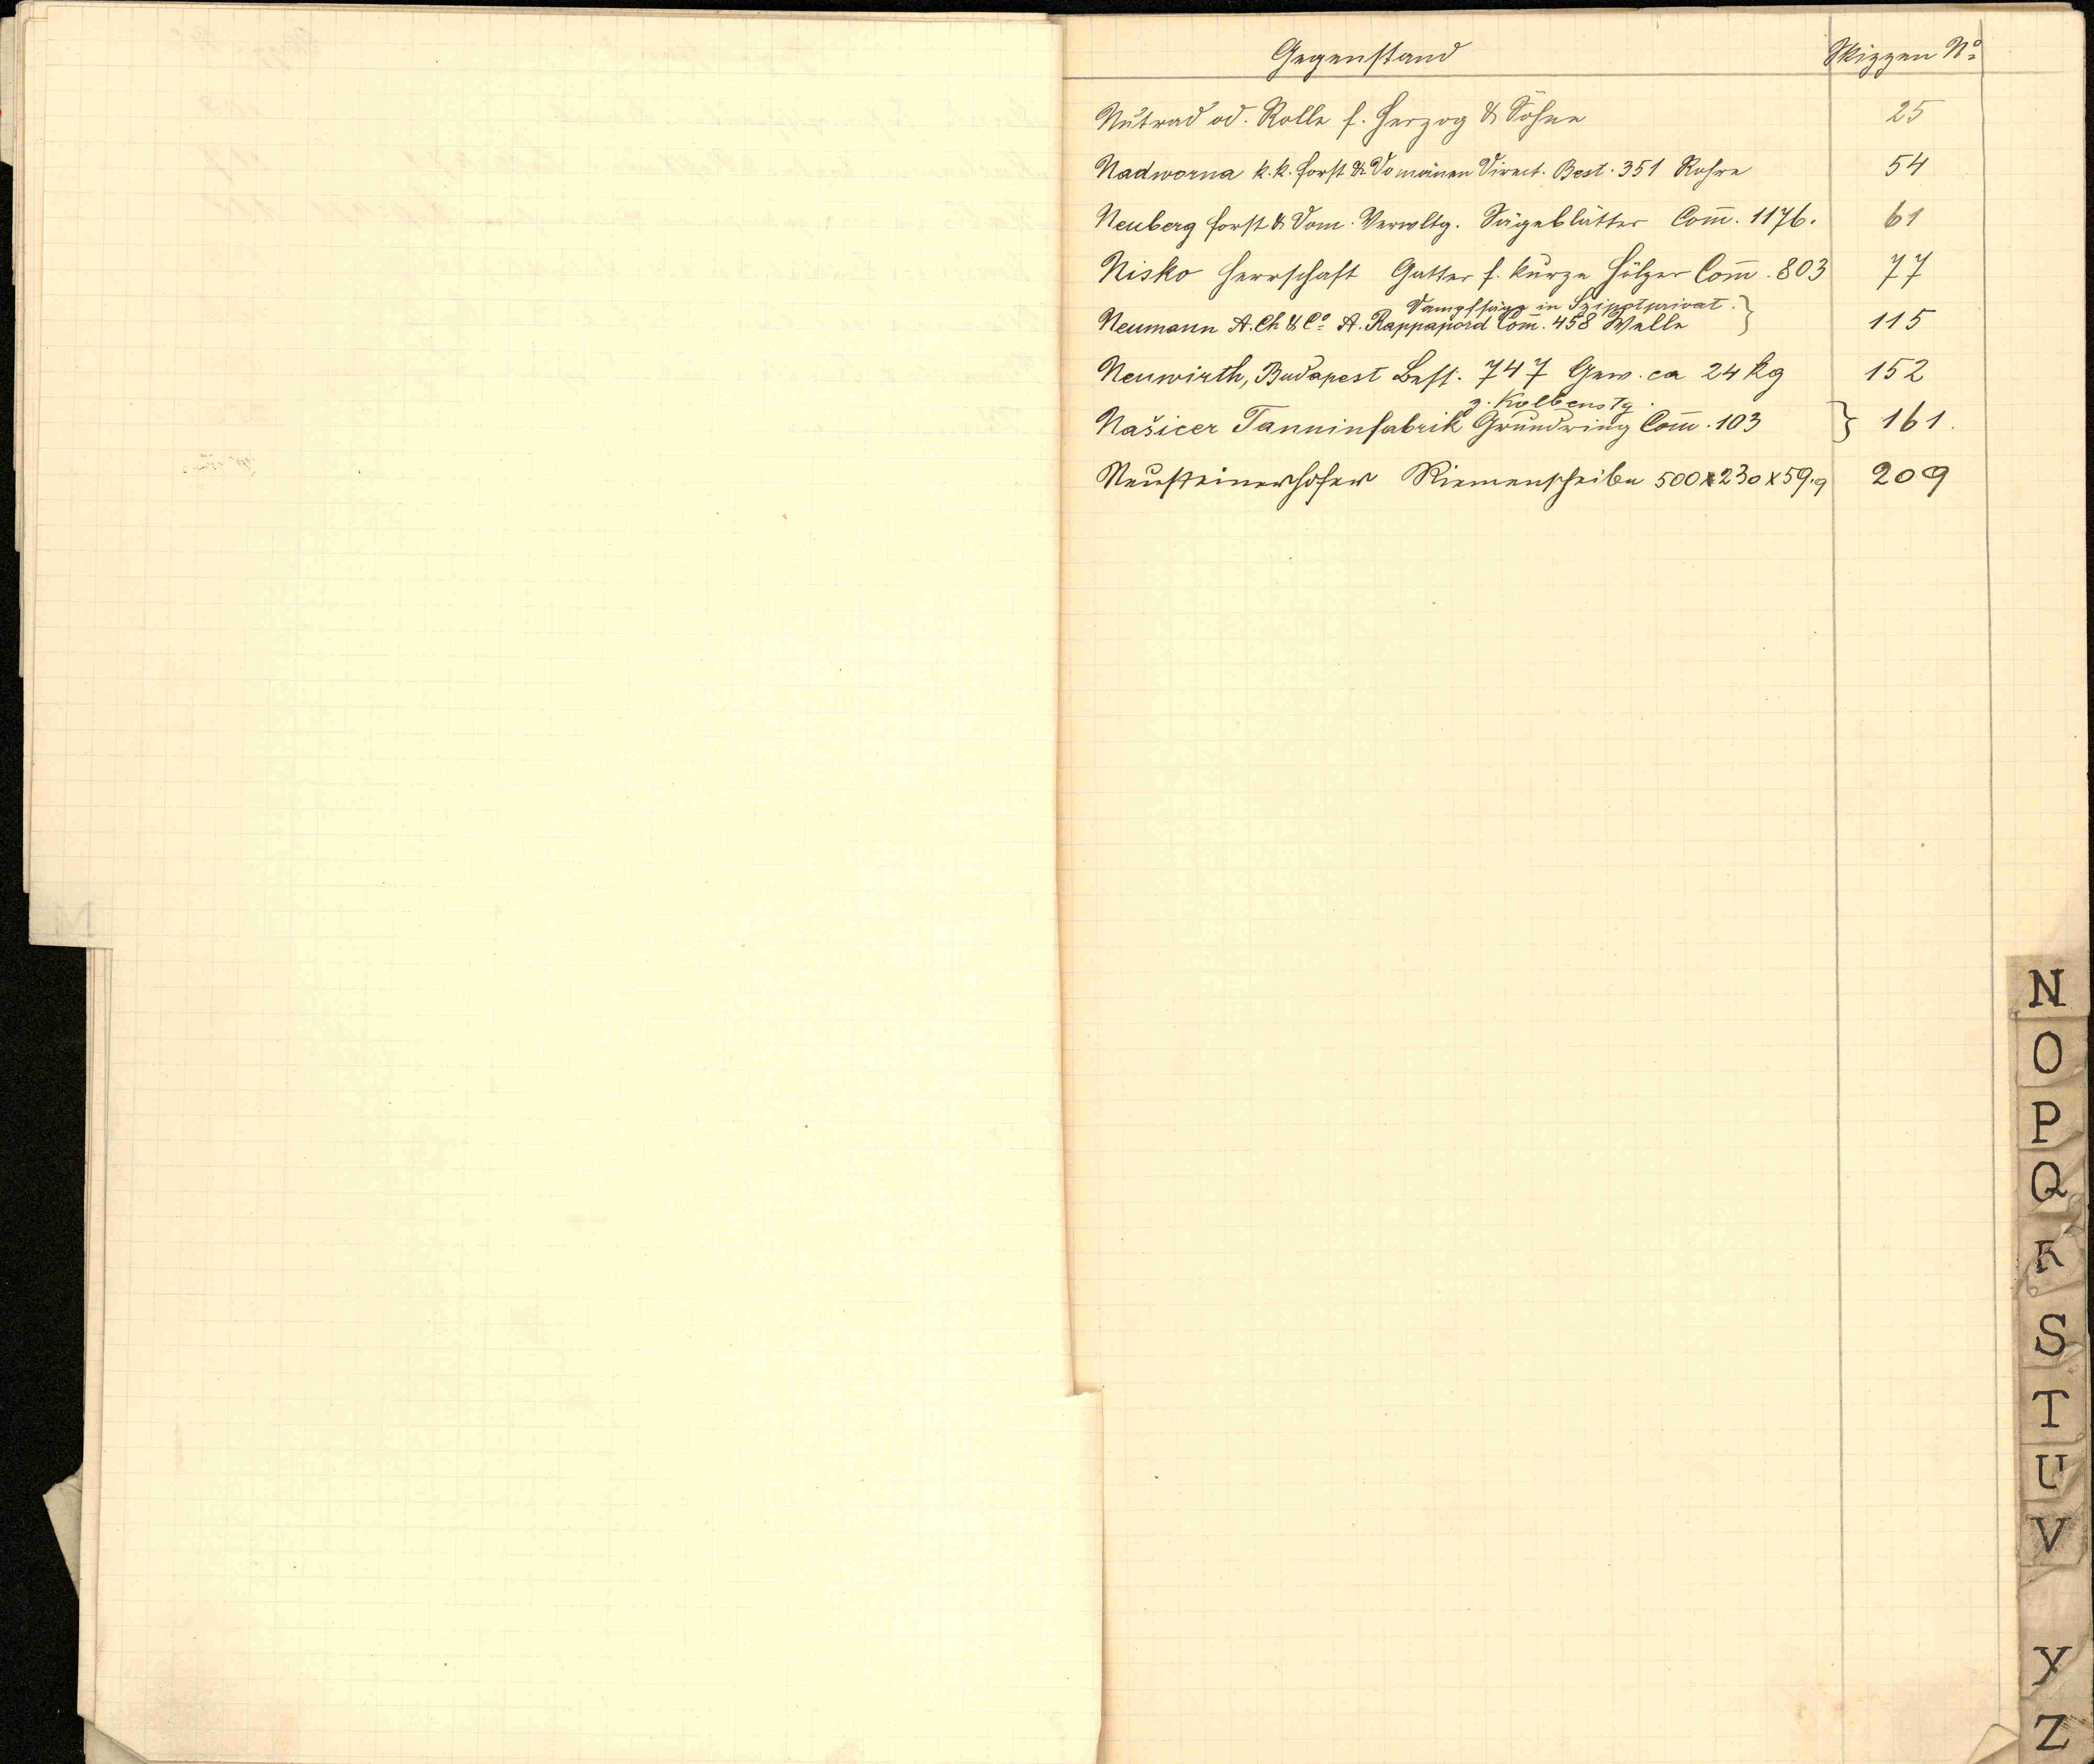 Gegenstand Skizzen Nº
Nutrad od. Rolle f. Herzog & Söhne 25
Nadworna k.k. Forst & Domänen Direct. Best. 351 Rohre 54
Neuberg Forst & Dom. Verwltg. Sägeblätter Com̄. 1176. 61
Nisko Herrschaft Gatter f. kurze Hölzer Com̄. 803 77
Dampfsäge in
Neumann A. Ch & Cº A. Rappapord Com̄. 458 Welle } 115
Neuwirth, Budapest Best. 747 Gew. ca 24 kg 152
z. Kolbenstg.
Našicer Tanninfabrik Grundring Com̄. 103 } 161.
Neusteinerhofer Riemenscheibe 500x230x59.9 209
M
N
O
P
Q
R
S
T
U
V
Y
Z